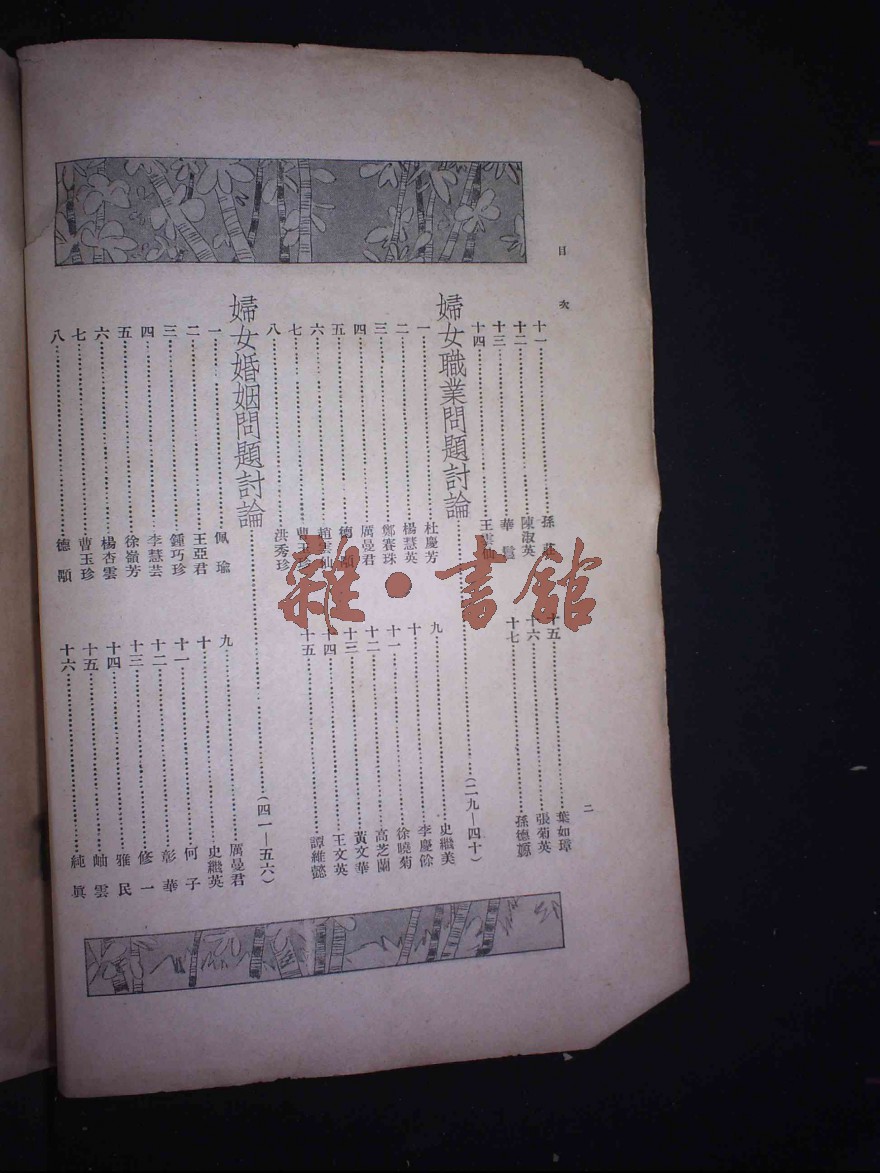 目次
二
十一 孫莊
十二 陳淑英
十三 華
十四 王雲仙
十五 葉如璋
十六 張菊英
十七 孫德
婦女職業問題討論 (二九—四十)
一 杜慶芳
二 楊慧英
三 鄭賽珠
四 厲曼君
五 德顒
六 趙雲仙
七 曹玉珍
八 洪秀珍
九 史繼美
十 李慶餘
十一 徐曉菊
十二 高芝蘭
十三 黃文華
十四 王文英
十五 譚維懿
婦女婚姻問題討論 (四一—五六)
一 佩瑜
二 王亞君
三 鍾巧珍
四 李慧芸
五 徐嶺芳
六 楊杏雲
七 曹玉珍
八 德顒
九 厲曼君
十 史繼英
十一 何子
十二 彰華
十三 修一
十四 雅民
十五 岫雲
十六 純眞
雜·書館